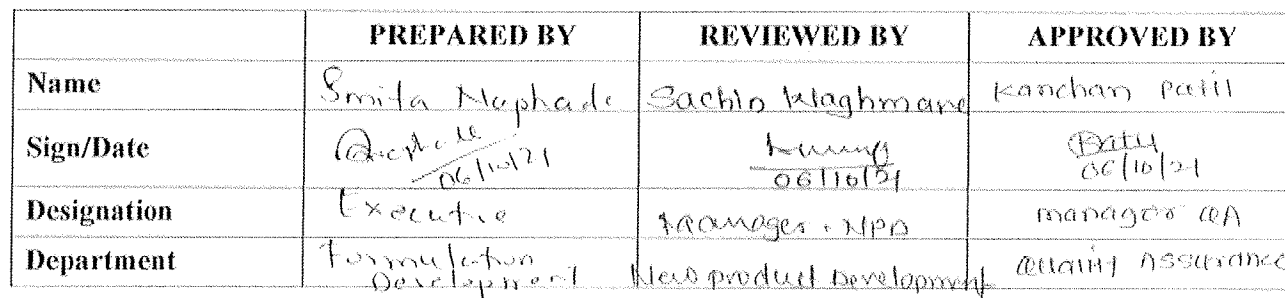 PREPARED BY REVIEWED BY APPROVED BY
Name Smita Naphade Sachin Waghmare Kanchan Patil
Sign/Date
06/10/21 06/10/21 06/10/21
Designation Executive Manager. NPD manager QA
Department Formulation Development New product Development Quality Assurance